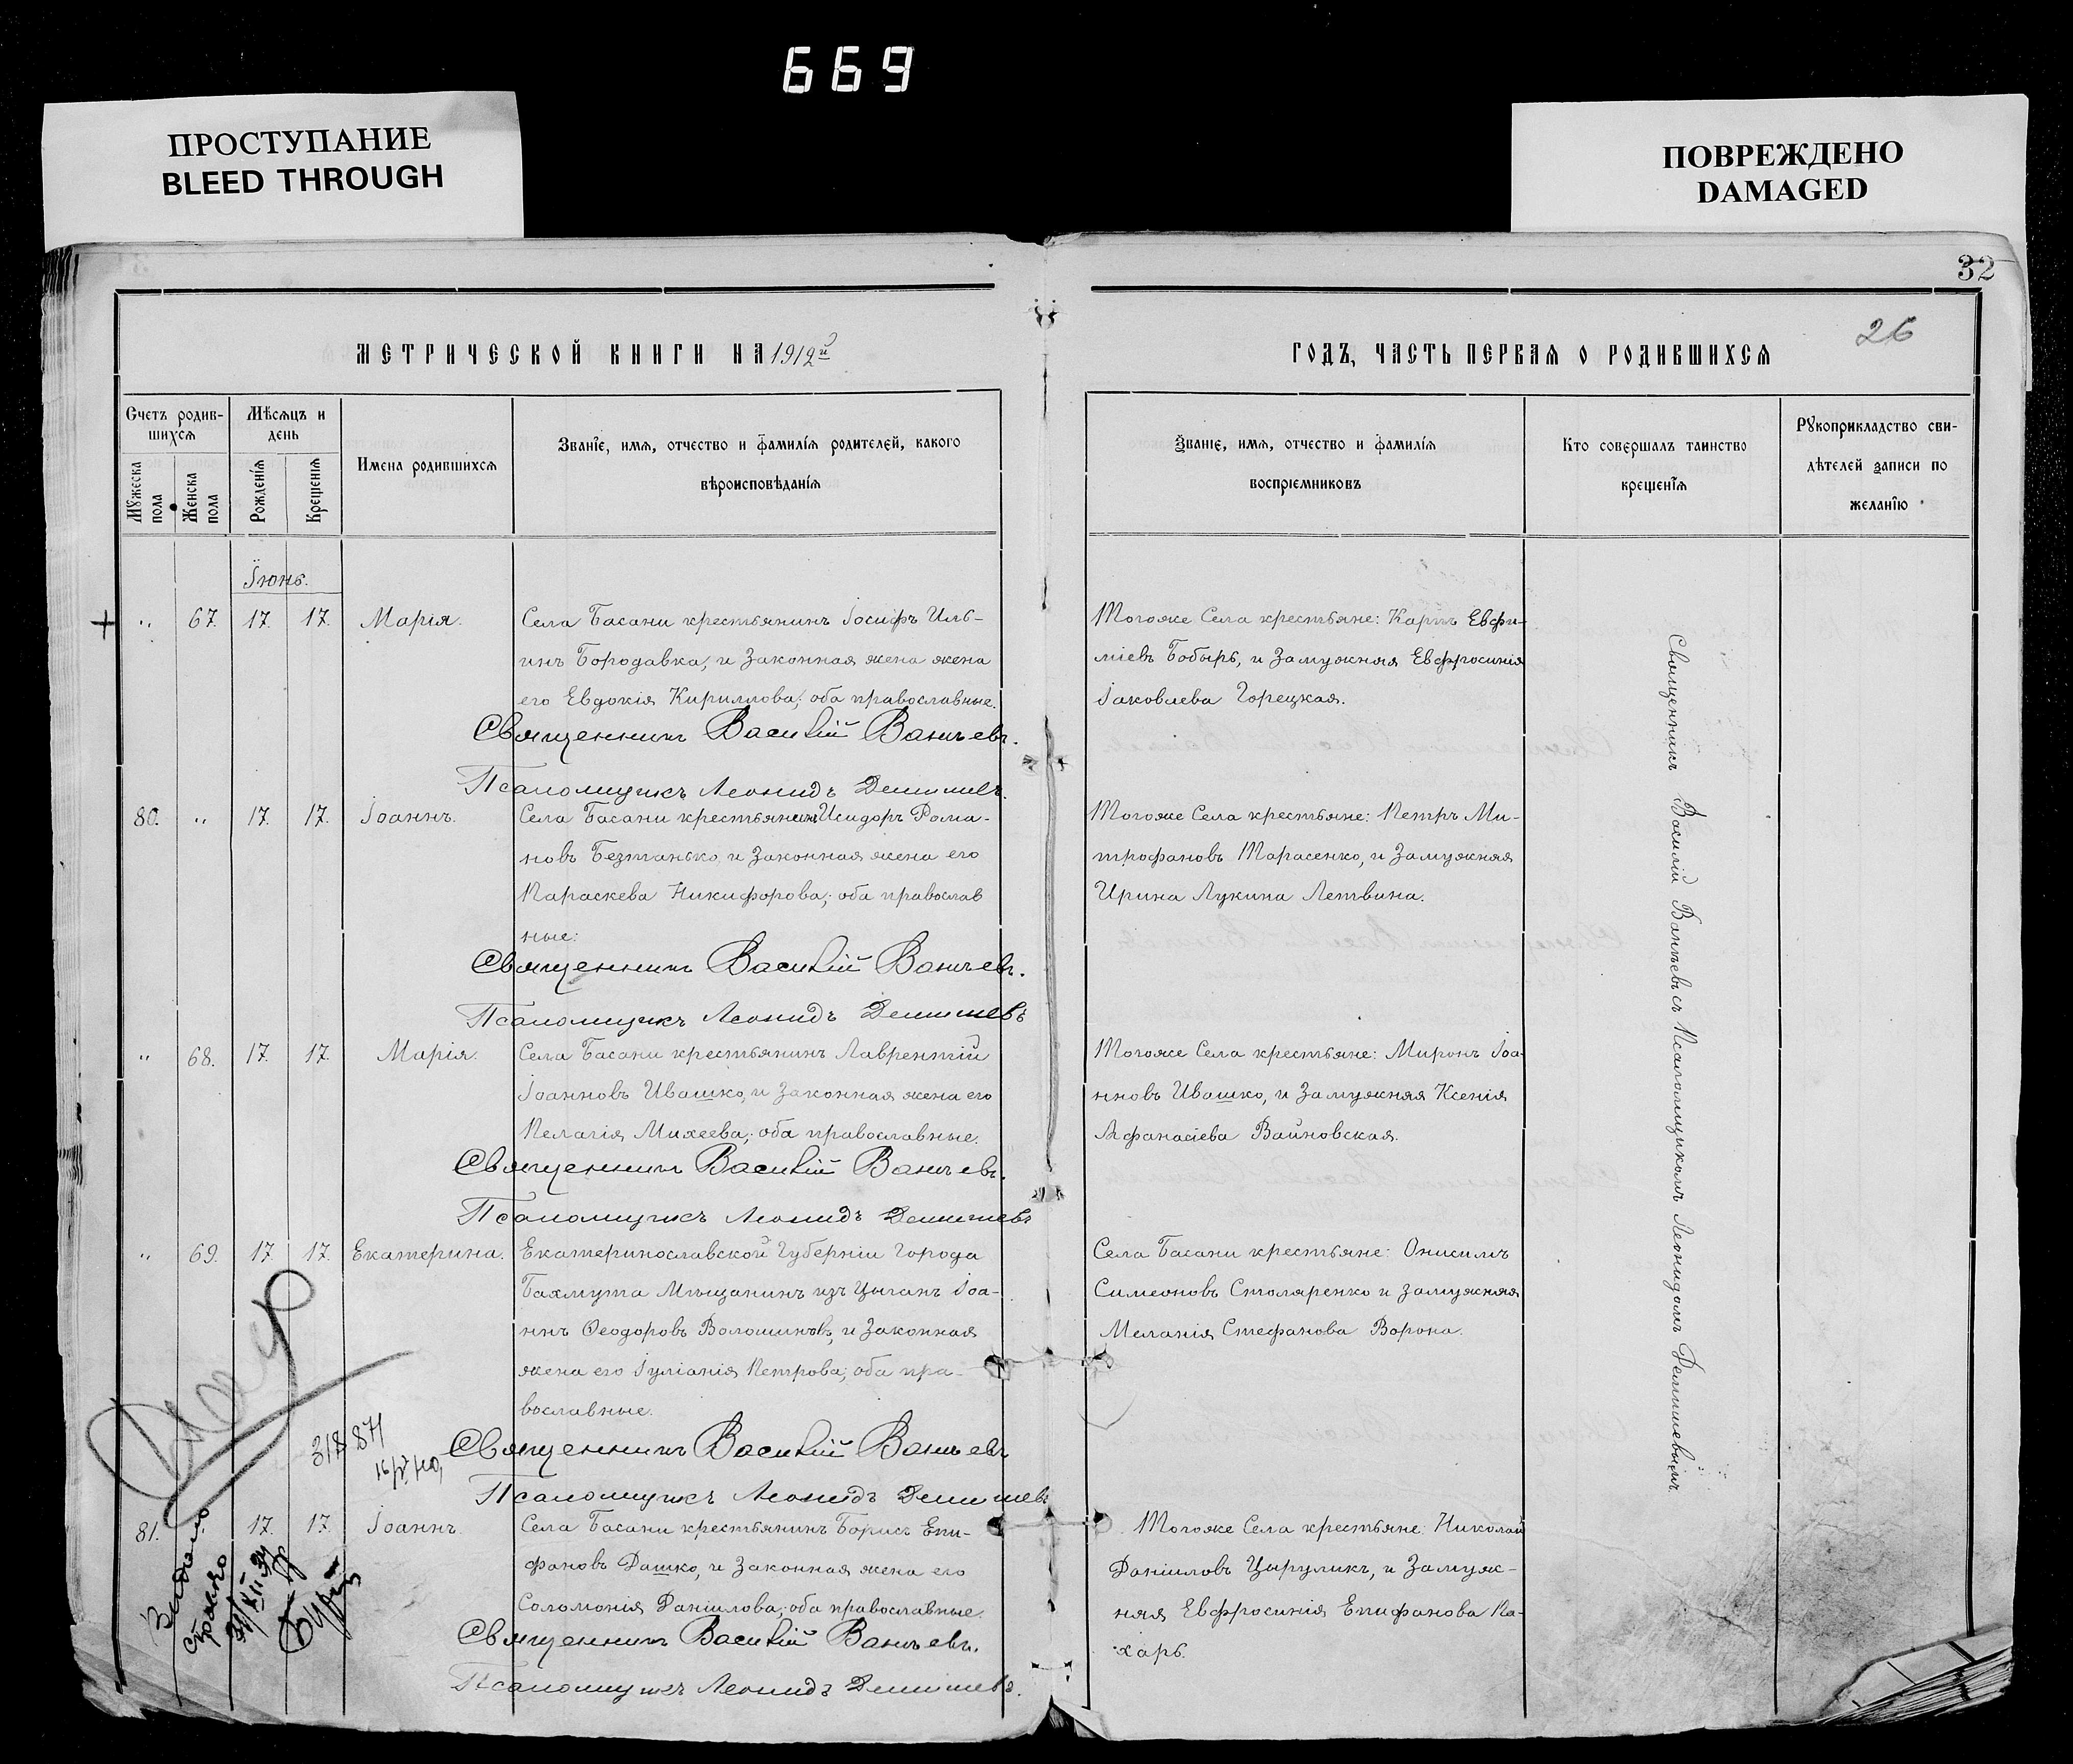 669
ПРОСТУПАНИЕ
BLEED THROUGH
ПОВРЕЖДЕНО
DAMAGED
32
26
МЕТРИЧЕСКОЙ КНИГИ НА 1912й
ГОДЪ, ЧАСТЬ ПЕРВАЯ О РОДИВШИХСЯ
Счетъ родив-
шихся
Мужеска пола
Женска пола
Мѣсяцъ и
день
Рожденїя
Крещенїя
Имена родившихся
Званїе, имя, отчество и фамилїя родителей, какого
вѣроисповѣданїя
Званїе, имя, отчество и фамилїя
воспрїемниковъ
Кто совершалъ таинство
крещенїя
Рукоприкладство сви-
дѣтелей записи по
желанїю
Іюнь.
" 67. 17. 17. Марія.
Села Басани крестьянинъ Іосифъ Иль-
инъ Бородавка, и Законная жена жена
его Евдокія Кириллова; оба православные.
Священникъ Василій Ванчевъ.
Псаломщикъ Леонидъ Демишевъ.
Тогоже Села крестьяне: Карпъ Евфи-
міевъ Бобырь, и Замужняя Евфросинія
Іаковлева Горецкая.
80. " 17. 17. Іоаннъ.
Села Басани крестьянинъ Исидоръ Рома-
новъ Безтанько, и Законная жена его
Параскева Никифорова; оба православ
ные:
Священникъ Василій Ванчевъ.
Псаломщикъ Леонидъ Демишевъ
Тогоже Села крестьяне: Петръ Ми-
трофановъ Тарасенко, и Замужняя
Ирина Лукина Летвина.
" 68. 17. 17. Марія.
Села Басани крестьянинъ Лаврентій
Іоанновъ Ивашко, и Законная жена его
Пелагія Михеева; оба православные.
Священникъ Василій Ванчевъ.
Псаломщикъ Леонидъ Демишевъ
Тогоже Села крестьяне: Миронъ Іоа-
нновъ Ивашко, и Замужняя Ксенія
Афанасіева Войновская.
" 69. 17. 17. Екатерина.
Екатеринославской Губерніи Города
Бахмута Мѣщанинъ изъ Цыганъ Іоа-
ннъ Ѳеодоровъ Волошинъ, и Законная
жена его Іуліанія Петрова; оба пра-
вославные.
Священникъ Василій Ванчевъ
Псаломщикъ Леонидъ Демишевъ
Села Басани крестьяне: Онисимъ
Симеоновъ Столяренко и Замужняя
Меланія Стефанова Ворона.
81. 17. 17. Іоаннъ.
Села Басани крестьянинъ Борисъ Епи-
фановъ Дашко, и Законная жена его
Соломонія Даніилова; оба православные.
Священникъ Василій Ванчевъ.
Псаломщикъ Леонидъ Демишевъ.
Тогоже Села крестьяне: Николай
Даніиловъ Цыруликъ, и Замуж-
няя Евфросинія Епифанова Ка-
харь.
Священникъ Василій Ванчевъ съ Псаломщикомъ Леонидомъ Демишевымъ.